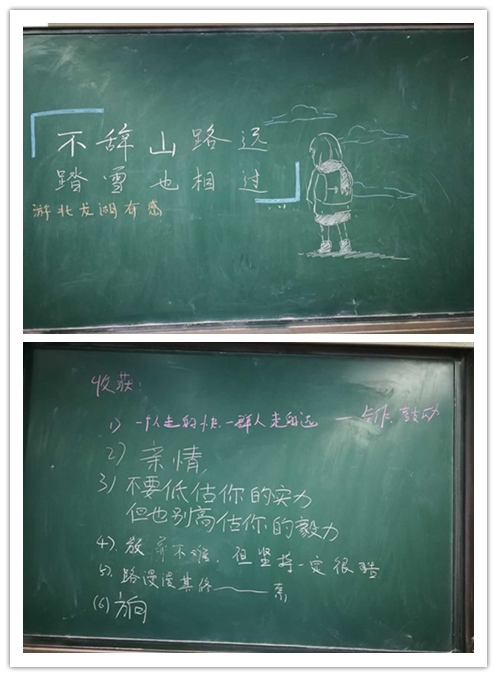 不辞山路远
踏雪也相过
游北龙湖有感
收获:
1) 一个人走的快 一群人走的远 —— 合作、鼓励
2) 亲情
3) 不要低估你的实力
但也别高估你的毅力
4). 放弃不难, 但坚持一定很酷
5). 路漫漫其修——累
(6) 方向